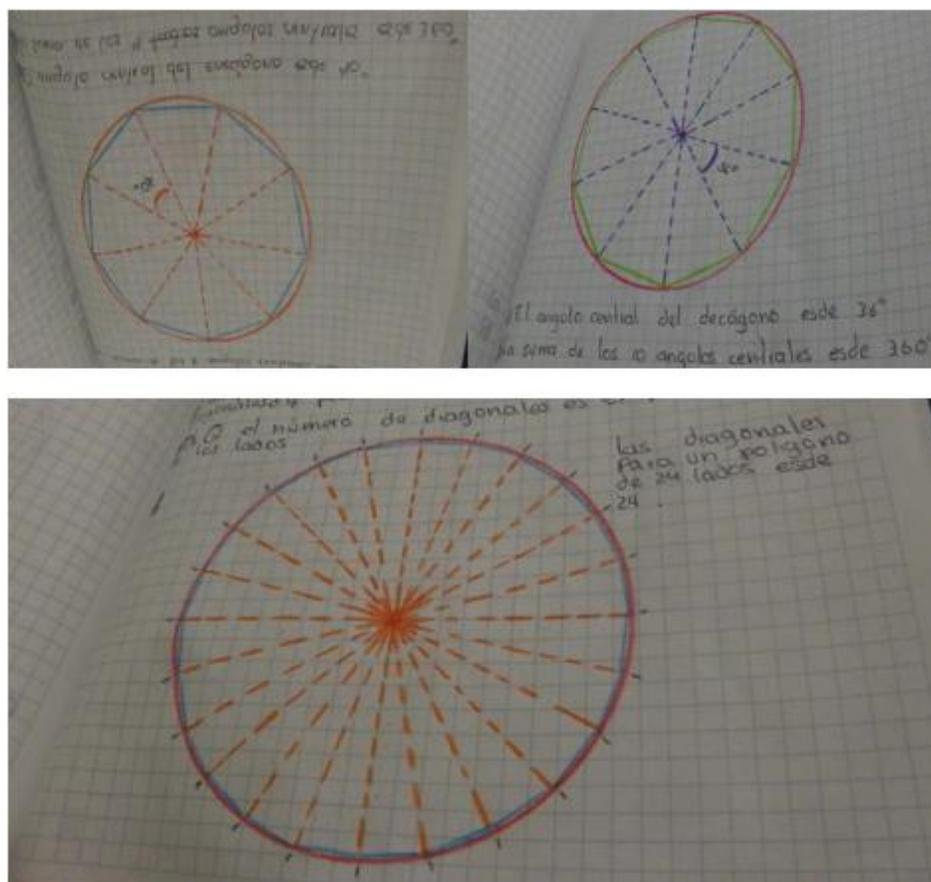 suma de los 9 angulos centrales esde 360°
angulo central del esde 40°
40°
El angulo central del decágono esde 36°
La suma de los 10 angulos centrales esde 360°
el número de diagonales es
los lados
las diagonales
para un poligono
de 24 lados esde
24 .